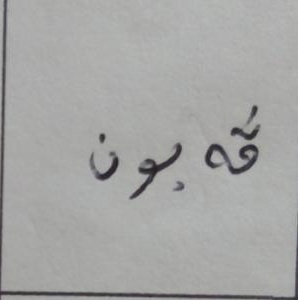 ڤەبون